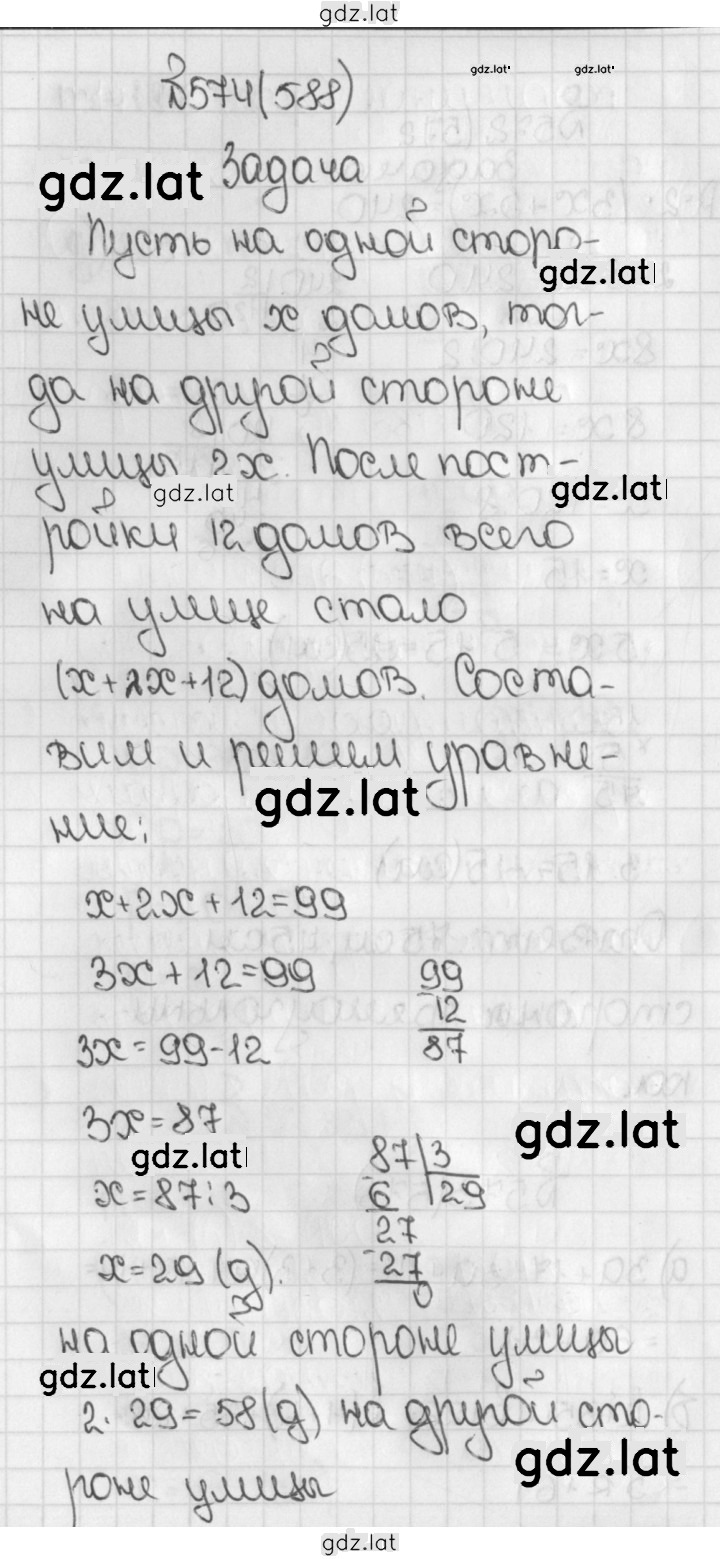 gdz.lat
gdz.lat gdz.lat
№574(588)
gdz.lat Задача
Пусть на одной сторо-
gdz.lat
не улицы x домов, тог-
да на другой стороне
улицы 2x. После пост-
gdz.lat gdz.lat
ройки 12 домов всего
на улице стало
(x+2x+12) домов. Соста-
вим и решим уравне-
gdz.lat
ние:
x+2x+12=99
3x+12=99 99
12
3x=99-12 87
3x=87
gdz.lat
gdz.lat 87 3
x=87:3 6 29
27
x=29 (д). -27
0
на одной стороне улицы
gdz.lat
2·29=58(д) на другой сто-
gdz.lat
роне улицы
gdz.lat